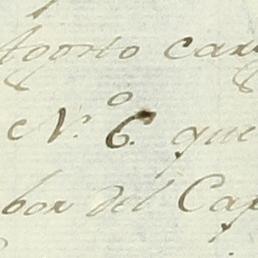 Agosto car
N.º 6. que
bor del Cap